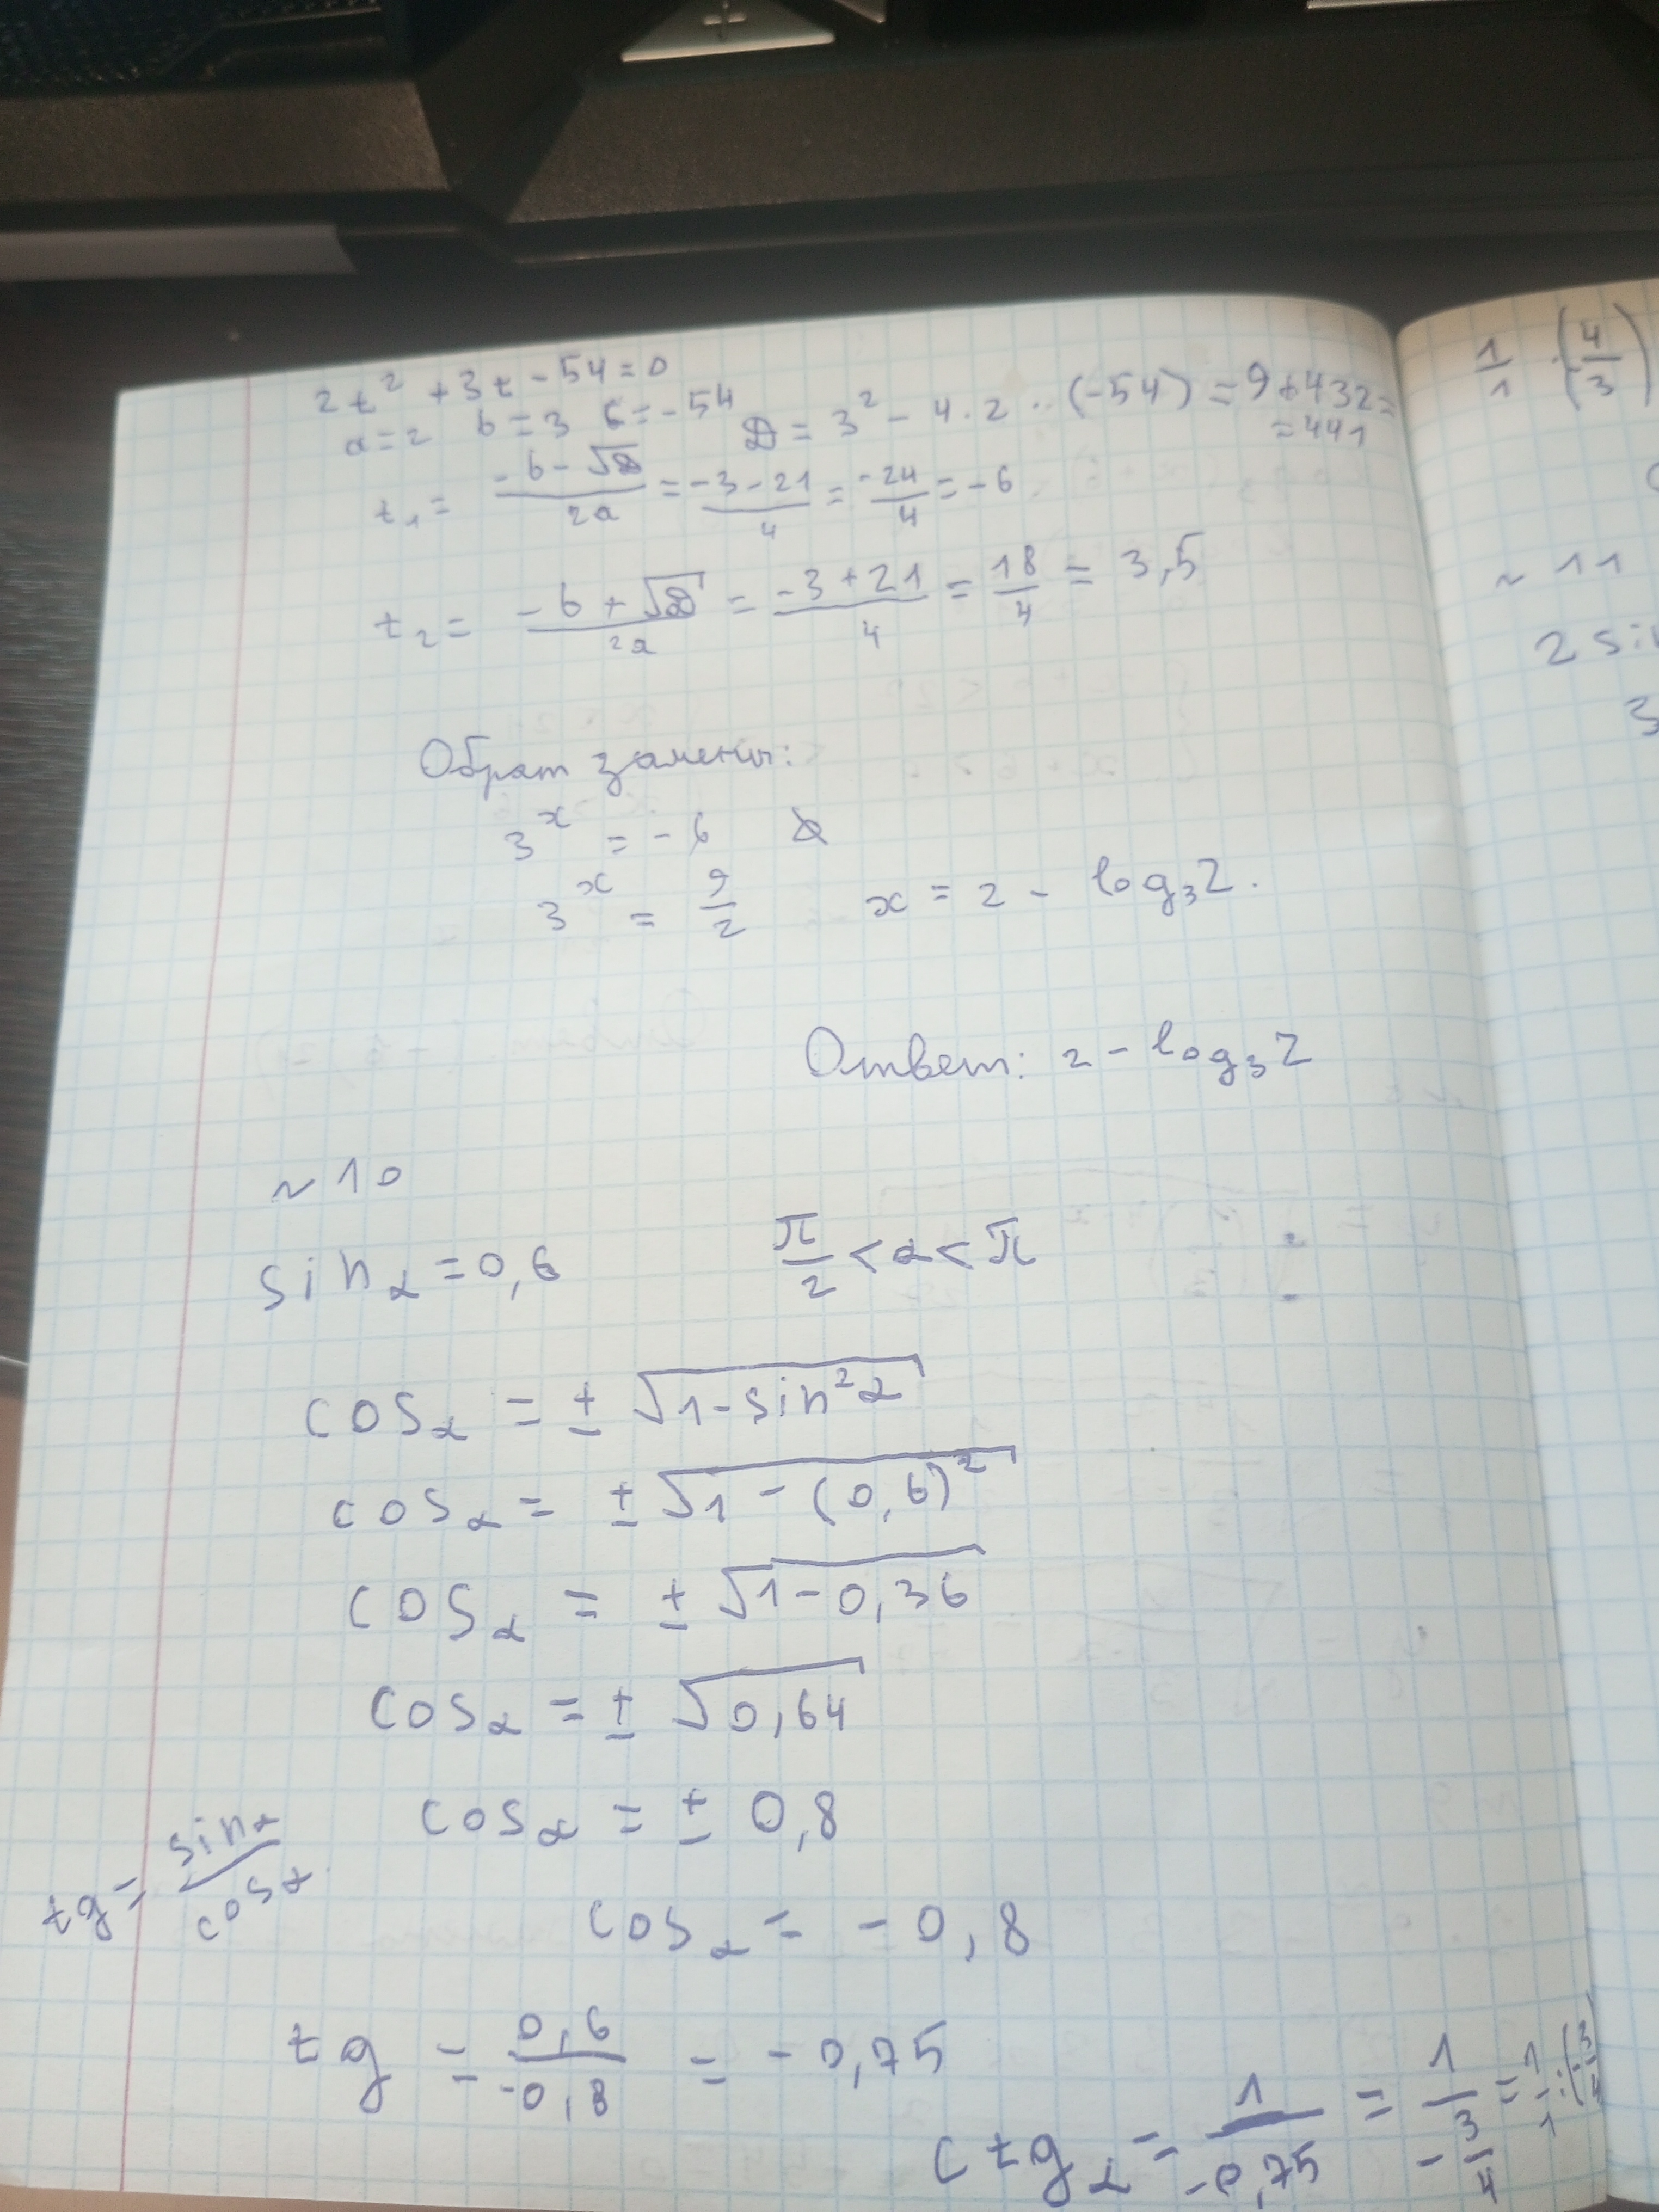 2t² + 3t - 54 = 0
a = 2 b = 3 c = -54 D = 3² - 4 · 2 · (-54) = 9 + 432 =
= 441
t₁ = (-b - √D)/2a = (-3 - 21)/4 = -24/4 = -6
t₂ = (-b + √D)/2a = (-3 + 21)/4 = 18/4 = 3,5
Обрат замены:
3ˣ = -6 ∅
3ˣ = 9/2 x = 2 - log₃2.
Ответ: 2 - log₃2
~10
sin α = 0,6 π/2 < α < π
cos α = ± √(1 - sin²α)
cos α = ± √(1 - (0,6)²)
cos α = ± √(1 - 0,36)
cos α = ± √0,64
cos α = ± 0,8
tg = sin α/cos α
cos α = -0,8
tg = 0,6/-0,8 = -0,75
ctg α = 1/-0,75 = 1/-3/4 = 1/1 : (-3/4
1/1 · (-4/3)
~11
2 sin
3